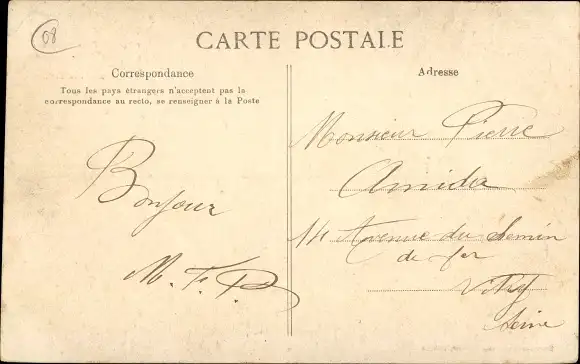 08
CARTE POSTALE
Correspondance
Tous les pays étrangers n'acceptent pas la
correspondance au recto, se renseigner à la Poste
Bonjour
M. F. P.
Adresse
Monsieur Pierre
Amida
14 Avenue du chemin
de fer
Vitry
Seine